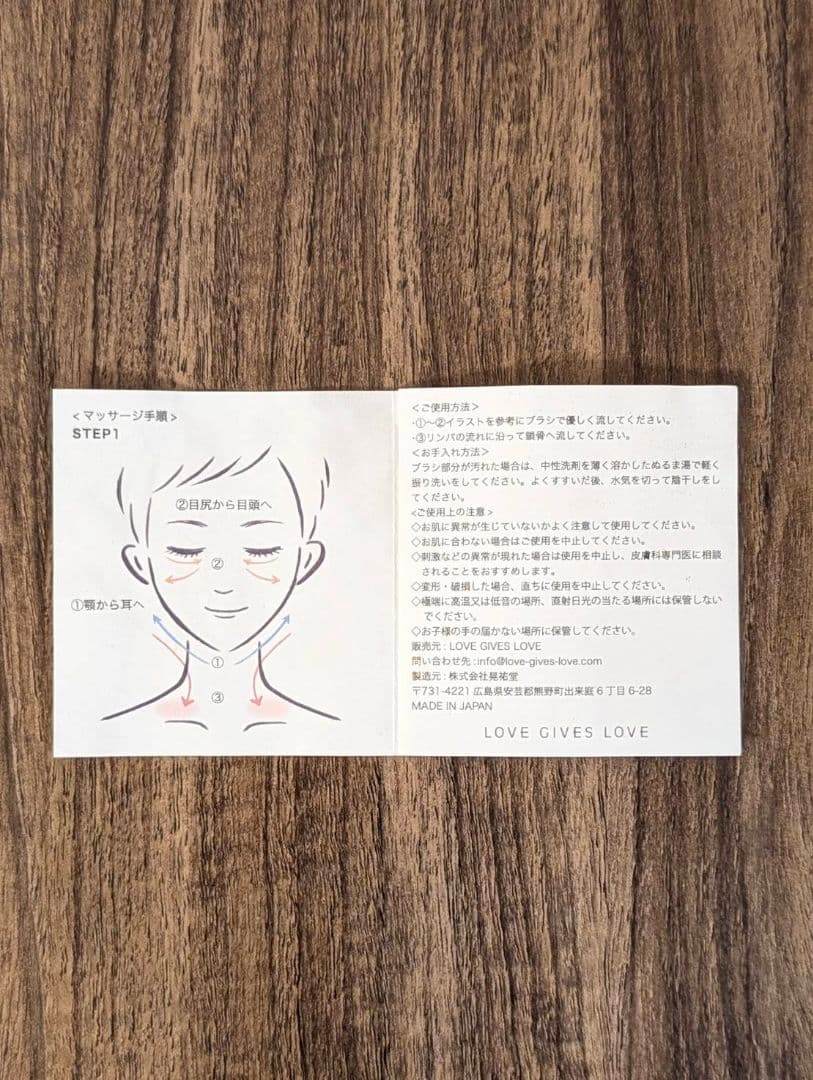 <マッサージ手順>
STEP1
②目尻から目頭へ
②
①顎から耳へ
①
③
<ご使用方法>
・①〜②イラストを参考にブラシで優しく流してください。
・③リンパの流れに沿って鎖骨へ流してください。
<お手入れ方法>
ブラシ部分が汚れた場合は、中性洗剤を薄く溶かしたぬるま湯で軽く
振り洗いをしてください。よくすすいだ後、水気を切って陰干しをし
てください。
<ご使用上の注意>
◇お肌に異常が生じていないかよく注意して使用してください。
◇お肌に合わない場合はご使用を中止してください。
◇刺激などの異常が現れた場合は使用を中止し、皮膚科専門医に相談
されることをおすすめします。
◇変形・破損した場合、直ちに使用を中止してください。
◇極端に高温又は低音の場所、直射日光の当たる場所には保管しない
でください。
◇お子様の手の届かない場所に保管してください。
販売元：LOVE GIVES LOVE
問い合わせ先：info@love-gives-love.com
製造元：株式会社晃祐堂
〒731-4221 広島県安芸郡熊野町出来庭6丁目6-28
MADE IN JAPAN
LOVE GIVES LOVE